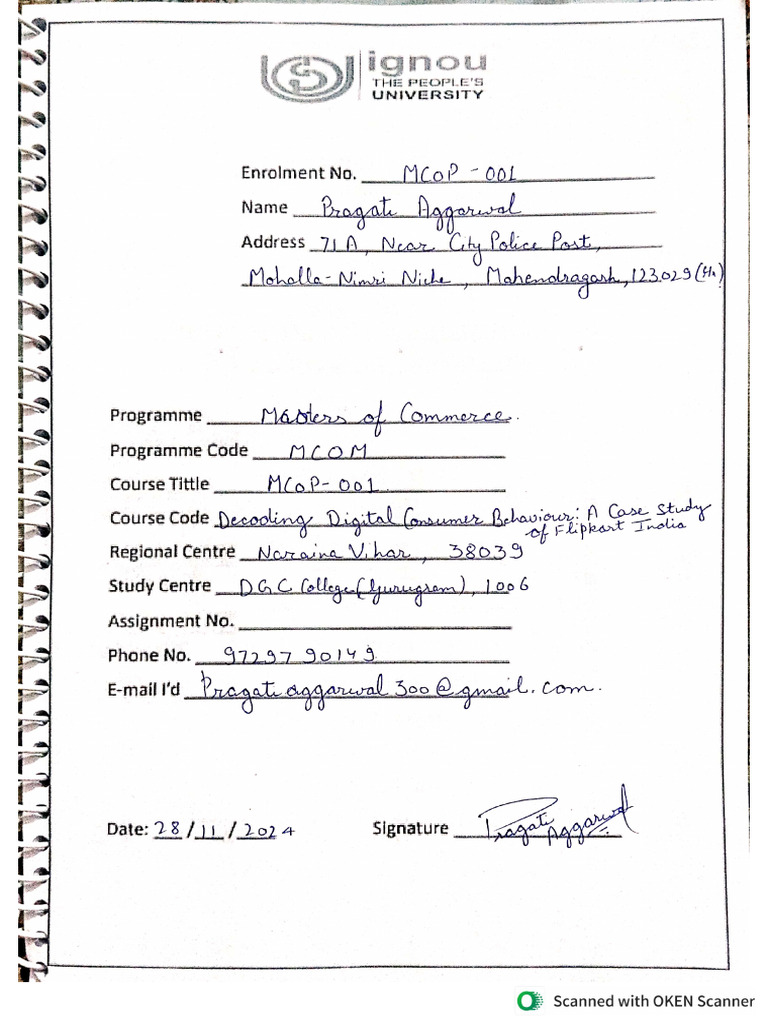 ignou
THE PEOPLE'S
UNIVERSITY
Enrolment No. MCOP-001
Name Pragati Aggarwal
Address 71A, Near City Police Post,
Mohalla-Nimri Niche, Mahendragarh, 123029 (Hr)
Programme Masters of Commerce.
Programme Code MCOM
Course Tittle MCOP-001
Course Code Decoding Digital Consumer Behaviour: A Case Study
of Flipkart India
Regional Centre Naraina Vihar, 38039
Study Centre DGC College (Gurugram), 1006
Assignment No.
Phone No. 97297 90149
E-mail I'd Pragatiaggarwal300@gmail.com.
Date: 28/11/2024 Signature Pragati Aggarwal
Scanned with OKEN Scanner